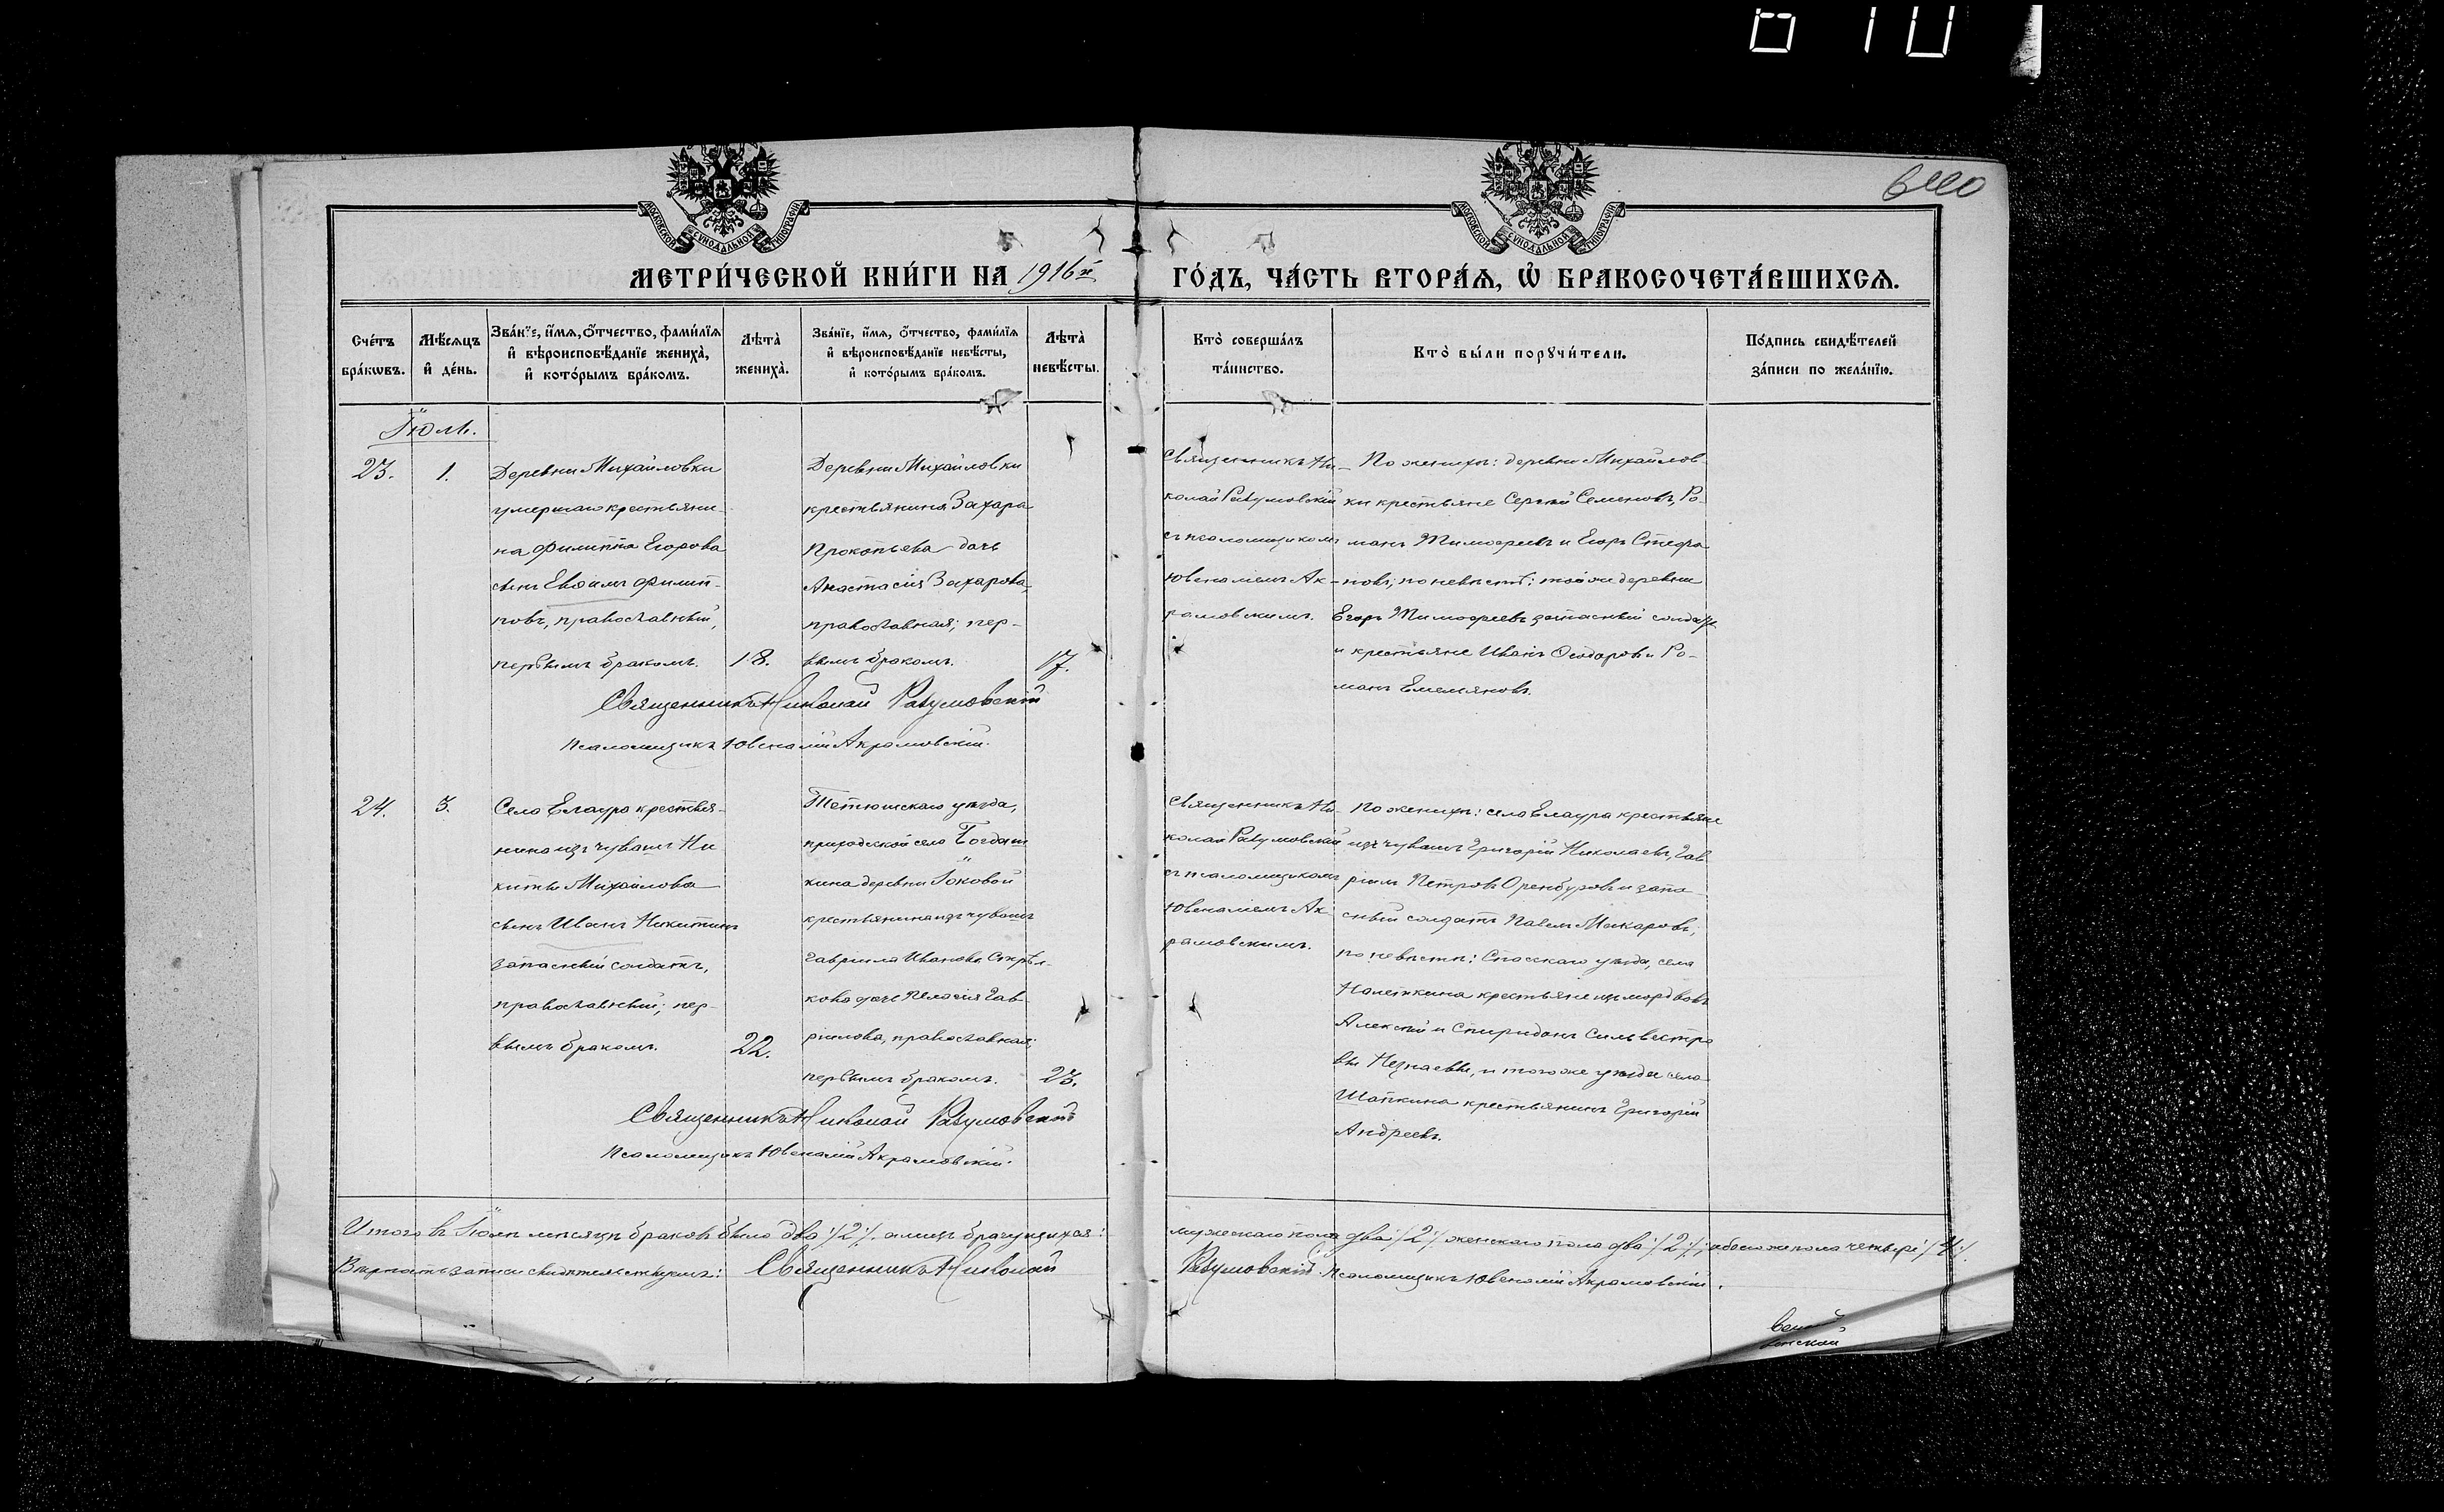 610
610
МОСКОВСКОЙ СѴНОДАЛЬНОЙ ТИПОГРАФІИ
МОСКОВСКОЙ СѴНОДАЛЬНОЙ ТИПОГРАФІИ
МЕТРИ́ЧЕСКОЙ КНИ́ГИ НА 1916й
ГО́ДЪ, ЧА́СТЬ ВТОРА́Я, Ѡ҆ БРАКОСОЧЕТА́ВШИХСЯ.
Сче́тъ
бра́кѡвъ.
Мѣ́сяцъ
и҆ де́нь.
Зва́нїе, и҆́мя, ѻ҆́тчество, фами́лїя
и҆ вѣроисповѣ́данїе жениха̀,
и҆ кото́рымъ бра́комъ.
Лѣта̀
жениха̀.
Зва́нїе, и҆́мя, ѻ҆́тчество, фами́лїя
и҆ вѣроисповѣ́данїе невѣ́сты,
и҆ кото́рымъ бра́комъ.
Лѣта̀
невѣ́сты.
Кто̀ соверша́лъ
та́инство.
Кто̀ бы́ли порꙋчи́тели.
По́дпись свидѣ́телей
за́писи по жела́нїю.
Іюль.
23.
1.
Деревни Михайловки
умершаго крестьяни-
на Филиппа Егорова
сынъ Евѳимъ Филип-
повъ, православный,
первымъ бракомъ.
18.
Деревни Михайловки
крестьянина Захара
Прокопьева дочь
Анастасія Захарова,
православная; пер-
вымъ бракомъ.
17.
Священникъ Ни-
колай Разумовскій
съ псаломщикомъ
Ювеналіемъ Ак-
рамовскимъ.
По женихѣ: деревни Михайлов-
ки крестьяне Сергѣй Семеновъ, Ро-
манъ Тимоѳеевъ и Егоръ Стефа-
новъ; по невѣстѣ: той же деревни
Егоръ Тимоѳеевъ запасный солдатъ
и крестьяне Иванъ Ѳеодоровъ и Ро-
манъ Емельяновъ.
Священникъ Николай Разумовскій
Псаломщикъ Ювеналій Акрамовскій.
24.
3.
Села Елаура крестья-
нина изъ чувашъ Ни
киты Михайлова
сынъ Иванъ Никитинъ
запасный солдатъ,
православный; пер-
вымъ бракомъ.
22.
Тетюшскаго уѣзда,
приходской села Богдаш
кина деревни Іоковой
крестьянина изъ чувашъ
Гавріила Иванова Стрѣл-
кова дочь Пелагія Гав-
ріилова, православная;
первымъ бракомъ.
23.
Священникъ Ни-
колай Разумовскій
съ псаломщикомъ
Ювеналіемъ Ак
рамовскимъ.
По женихѣ: села Елаура крестьяне
изъ чувашъ Григорій Николаевъ, Гав
ріилъ Петровъ Оренбуровъ и запа-
сный солдатъ Павелъ Макаровъ;
по невѣстѣ: Спасскаго уѣзда, села
Налеткина крестьяне изъ мордвовъ
Алексѣй и Спиридонъ Сильвестро
вы Незнаевы, и того же уѣзда села
Шапкина крестьянинъ Григорій
Андреевъ.
Священникъ Николай Разумовскій
Псаломщикъ Ювеналій Акрамовскій.
Итого въ Іюлѣ мѣсяцѣ браковъ было два /2/. а лицъ брачущихся: мужескаго пола два /2/ женскаго пола два /2/; обоего же пола четыре /4/.
Вѣрность записи свидѣтельствуемъ: Священникъ Николай Разумовскій. Псаломщикъ Ювеналій Акрамовскій.